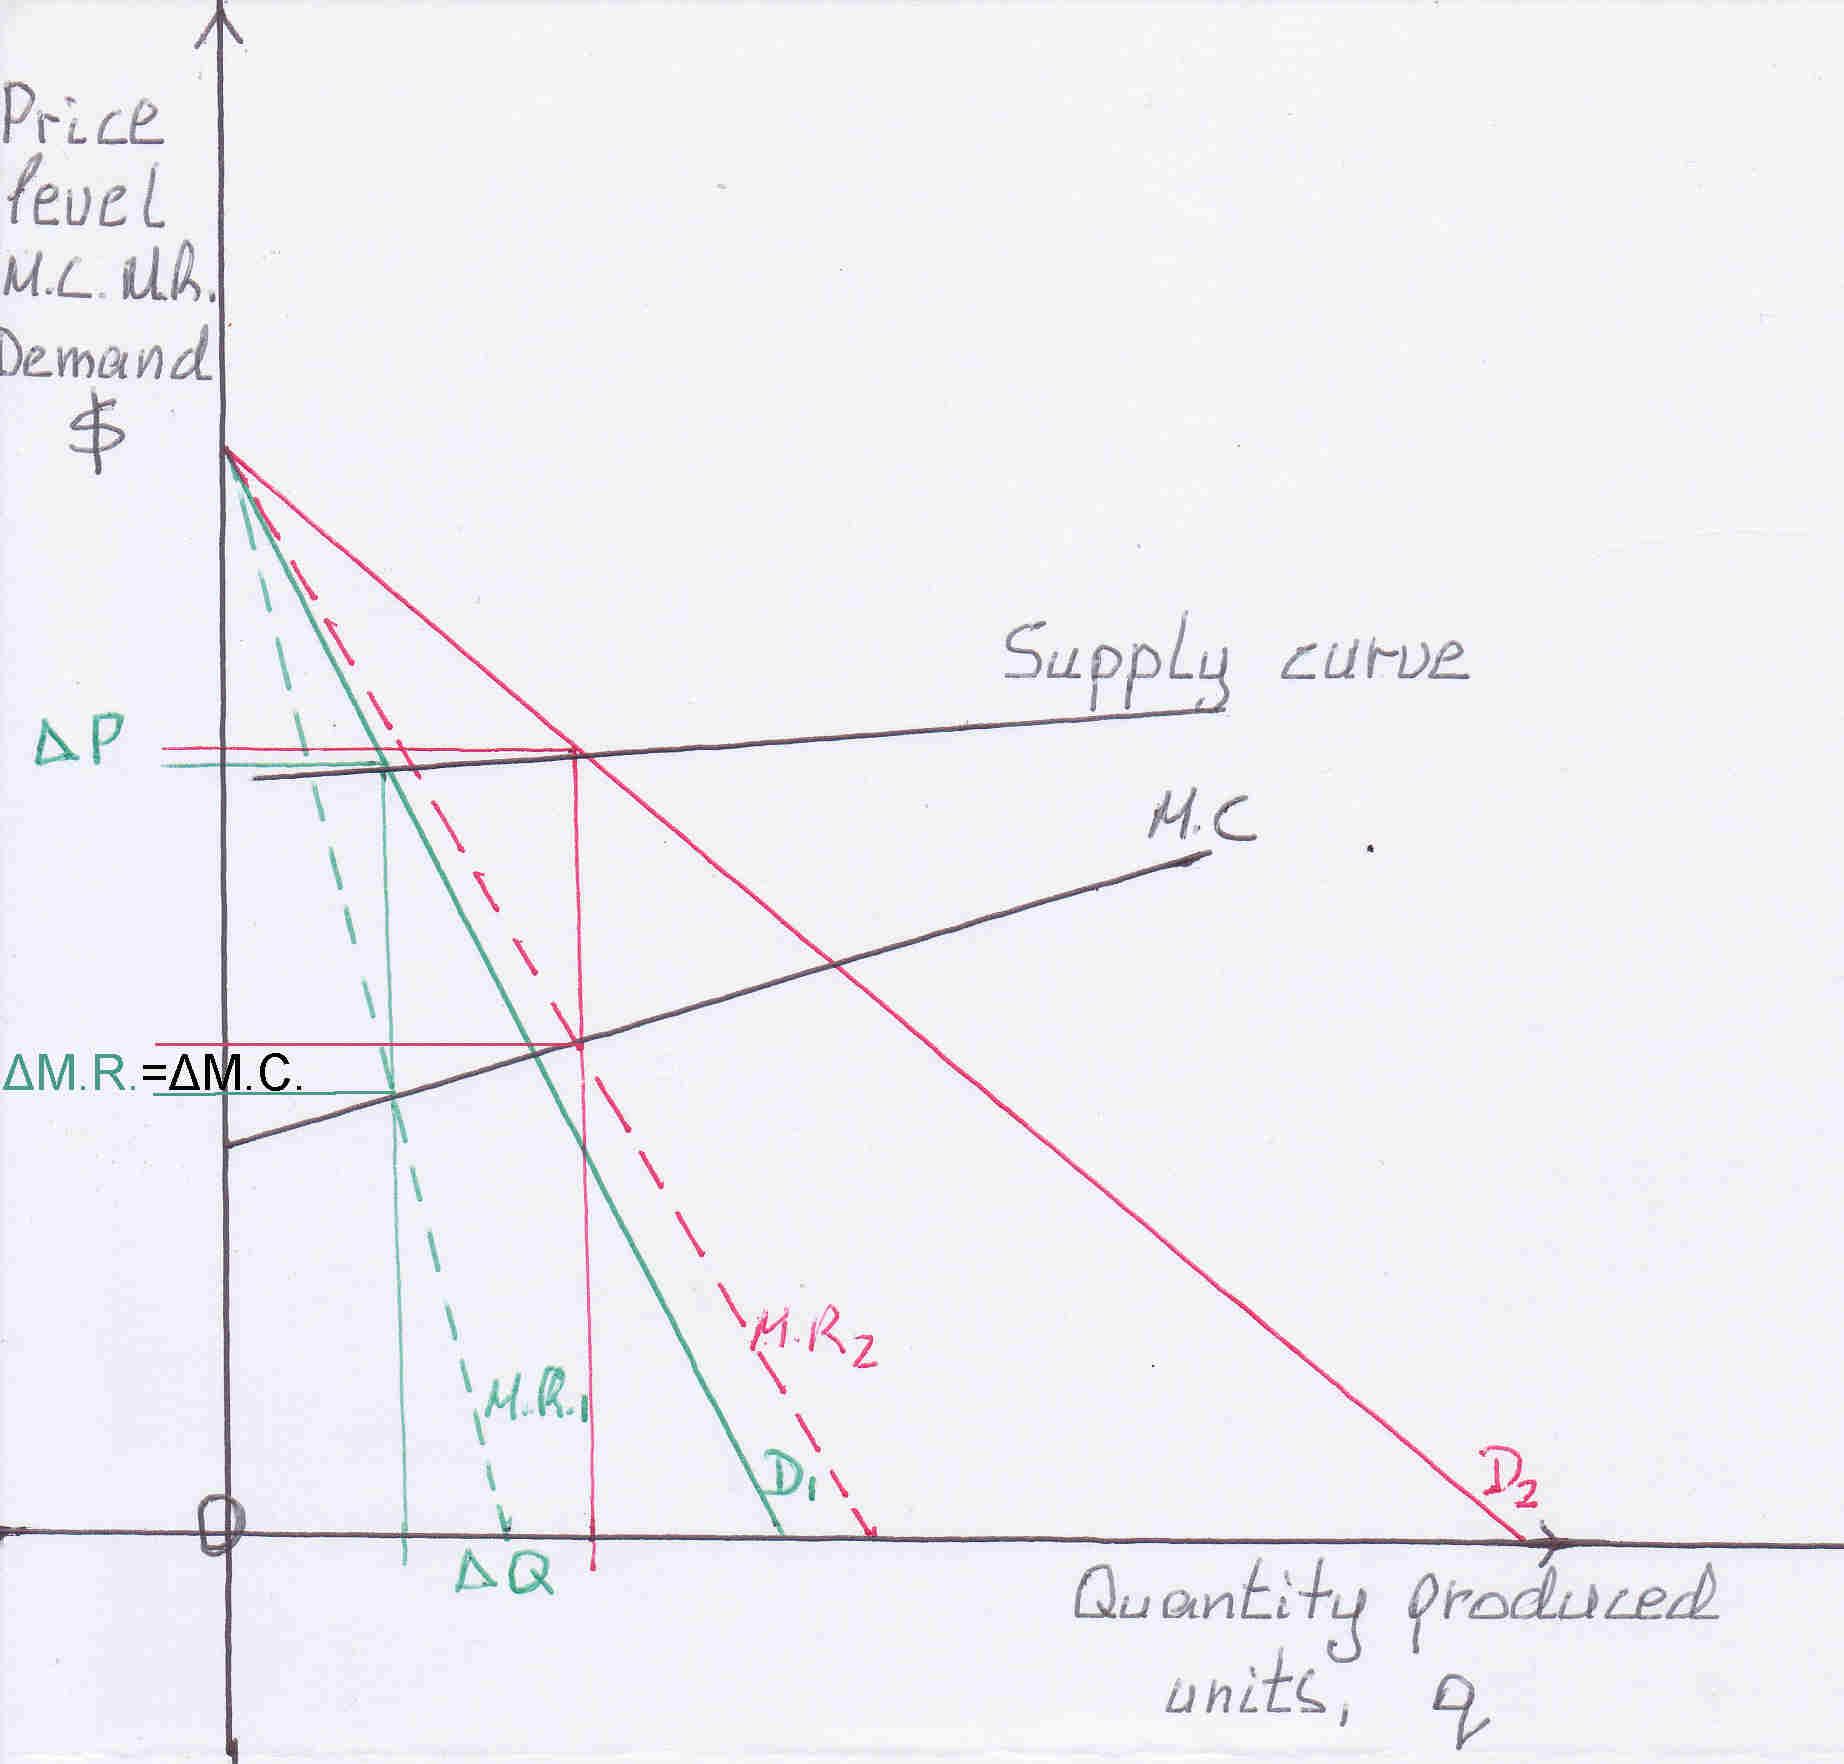 Price
level
M.C. M.R.
Demand
$
Supply curve
ΔP
M.C
ΔM.R.=ΔM.C.
M.R2
M.R.1
D1
D2
O
ΔQ
Quantity produced
units, q